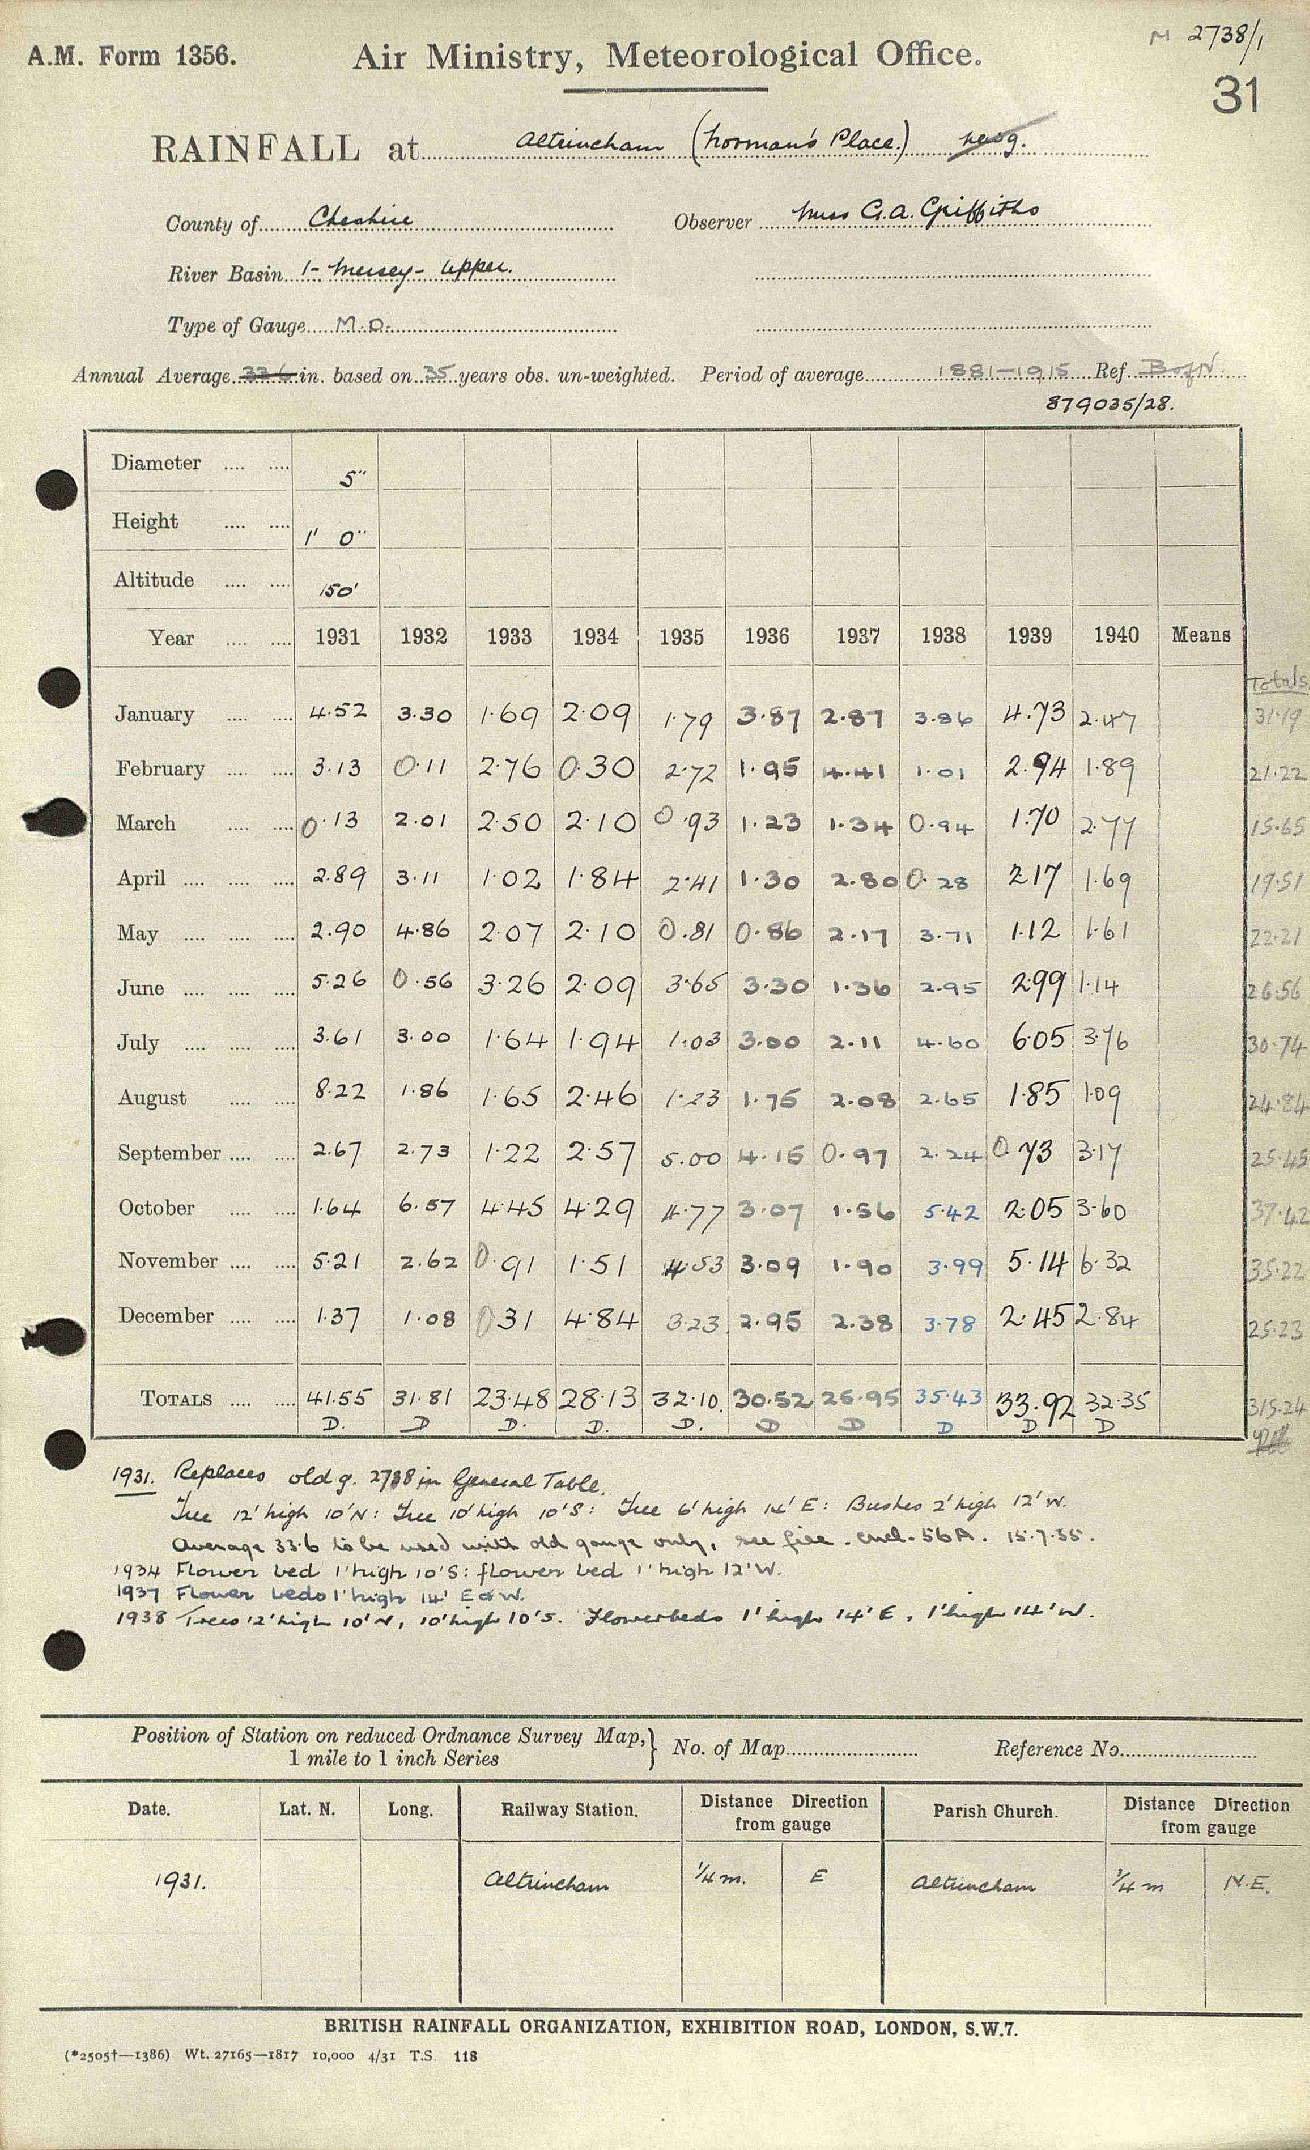 M 2738/1
A.M. Form 1356. Air Ministry, Meteorological Office.
31
RAINFALL at Altrincham (Norman's Place.) new g.
County of Cheshire Observer Miss G.A. Griffiths
River Basin 1- Mersey - Upper.
Type of Gauge M.O.
Annual Average 33.6 in. based on 35 years obs. un-weighted. Period of average 1881-1915 Ref. B of N
879035/28.
Diameter .... .... 5"
Height .... .... 1' 0"
Altitude .... .... 150'
Year .... .... 1931 1932 1933 1934 1935 1936 1937 1938 1939 1940 Means
Totals
January .... .... 4.52 3.30 1.69 2.09 1.79 3.87 2.87 3.86 4.73 2.47 31.19
February .... .... 3.13 0.11 2.76 0.30 2.72 1.95 4.41 1.01 2.94 1.89 21.22
March .... .... 0.13 2.01 2.50 2.10 0.93 1.23 1.34 0.94 1.70 2.77 15.65
April .... .... .... 2.89 3.11 1.02 1.84 2.41 1.30 2.80 0.28 2.17 1.69 19.51
May .... .... .... 2.90 4.86 2.07 2.10 0.81 0.86 2.17 3.71 1.12 1.61 22.21
June .... .... .... 5.26 0.56 3.26 2.09 3.65 3.30 1.36 2.95 2.99 1.14 26.56
July .... .... .... 3.61 3.00 1.64 1.94 1.03 3.00 2.11 4.60 6.05 3.76 30.74
August .... .... 8.22 1.86 1.65 2.46 1.23 1.75 2.08 2.65 1.85 1.09 24.84
September .... .... 2.67 2.73 1.22 2.57 5.00 4.15 0.97 2.24 0.73 3.17 25.45
October .... .... 1.64 6.57 4.45 4.29 4.77 3.07 1.56 5.42 2.05 3.60 37.42
November .... .... 5.21 2.62 0.91 1.51 4.53 3.09 1.90 3.99 5.14 6.32 35.22
December .... .... 1.37 1.08 0.31 4.84 3.23 2.95 2.38 3.78 2.45 2.84 25.23
TOTALS .... .... 41.55 31.81 23.48 28.13 32.10. 30.52 26.95 35.43 33.92 32.35 315.24
D. D D. D. D. D D D D D
1931. Replaces old g. 2738 in General Table.
Tree 12' high 10' N: Tree 10' high 10' S: Tree 6' high 14' E: Bushes 2' high 12' W.
Average 33.6 to be used with old gauge only, see file. encl. 56A. 15.7.35.
1934 Flower bed 1' high 10' S: flower bed 1' high 12' W.
1937 Flower beds 1' high 14' E & W.
1938 Trees 12' high 10' N, 10' high 10' S. Flowerbeds 1' high 14' E, 1' high 14' W.
Position of Station on reduced Ordnance Survey Map,} No. of Map Reference No.
1 mile to 1 inch Series
Date. Lat. N. Long. Railway Station. Distance Direction from gauge Parish Church. Distance Direction from gauge
1931. Altrincham 1/4 m. E Altrincham 1/4 m N.E.
BRITISH RAINFALL ORGANIZATION, EXHIBITION ROAD, LONDON, S.W.7.
(*2505†—1386) Wt. 27165—1817 10,000 4/31 T.S. 118